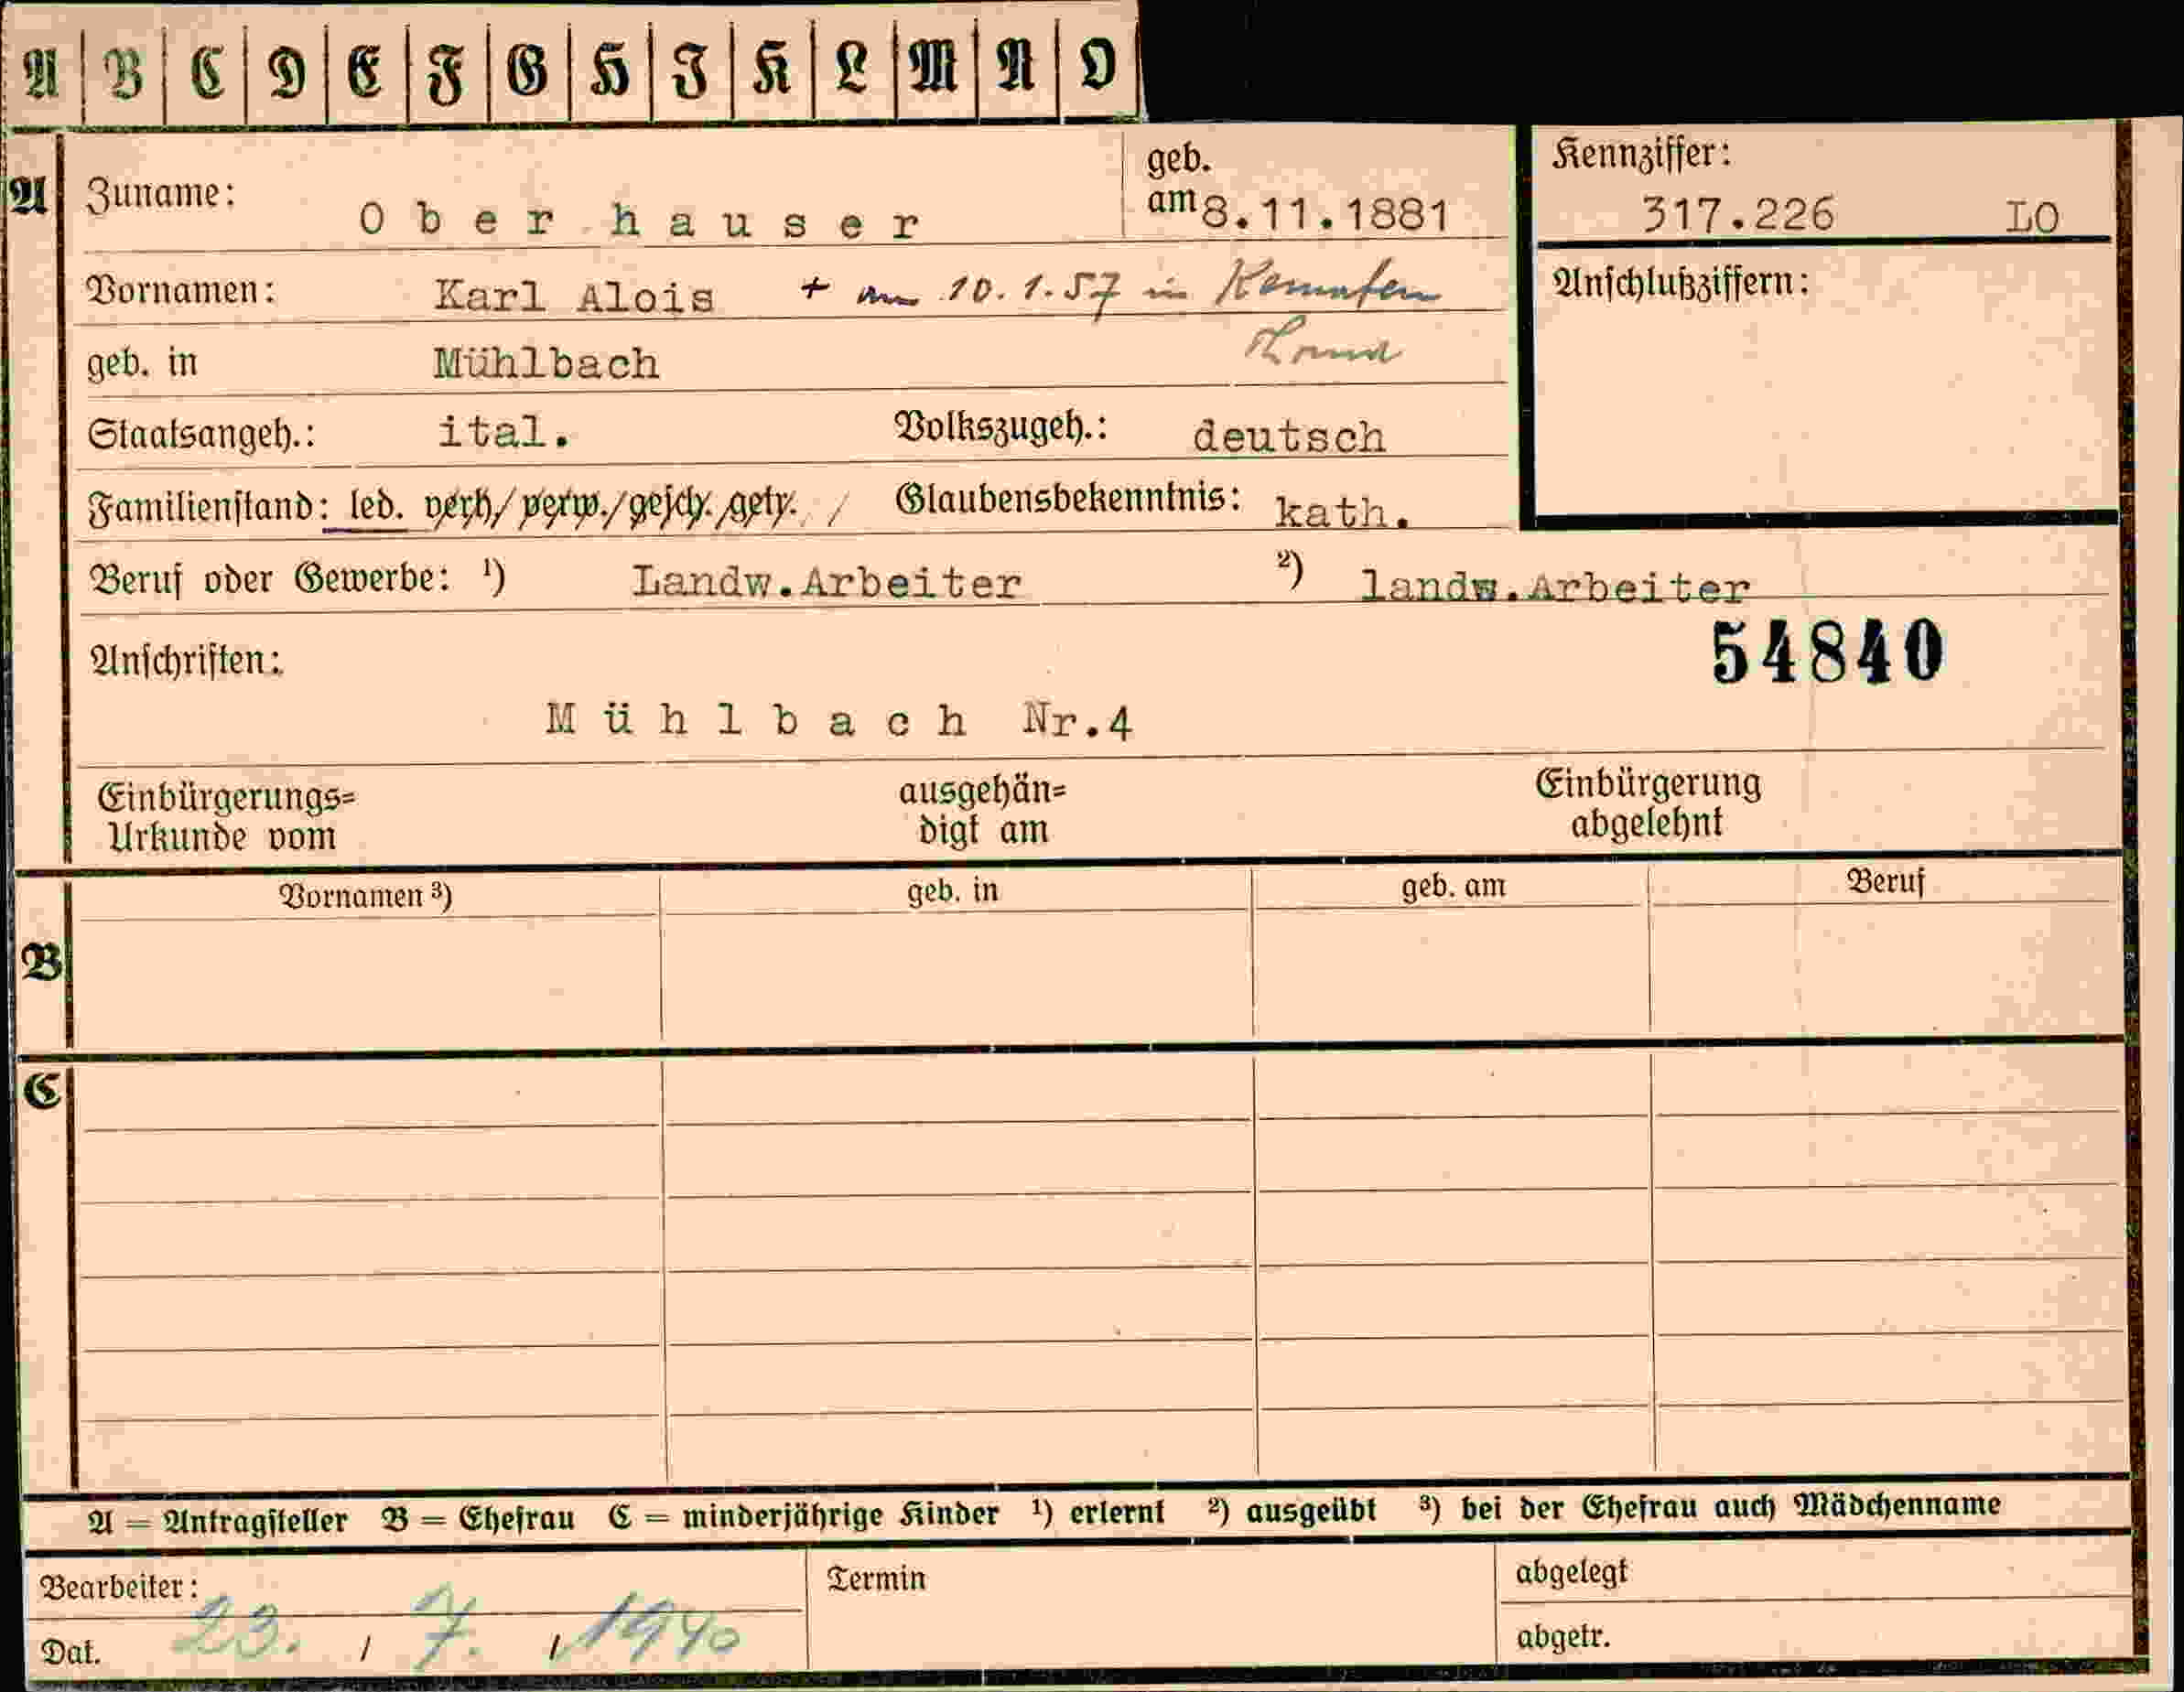 A B C D E F G H I K L M N O
A Zuname: Oberhauser geb. am 8.11.1881 Kennziffer: 317.226 LO
Vornamen: Karl Alois + am 10.1.57 in Kematen Anschlußziffern:
geb. in Mühlbach
Staatsangeh.: ital. Volkszugeh.: deutsch
Familienstand: led. verh/verw./gesch./getr. / Glaubensbekenntnis: kath.
Beruf oder Gewerbe: ¹) Landw.Arbeiter ²) landw.Arbeiter
Anschriften: 54840
Mühlbach Nr.4
Einbürgerungs= ausgehän= Einbürgerung
Urkunde vom digt am abgelehnt
Vornamen ³) geb. in geb. am Beruf
B
C
A = Antragsteller B = Ehefrau C = minderjährige Kinder ¹) erlernt ²) ausgeübt ³) bei der Ehefrau auch Mädchenname
Bearbeiter: Termin abgelegt
Dat. 23. / 7. / 1940 abgetr.